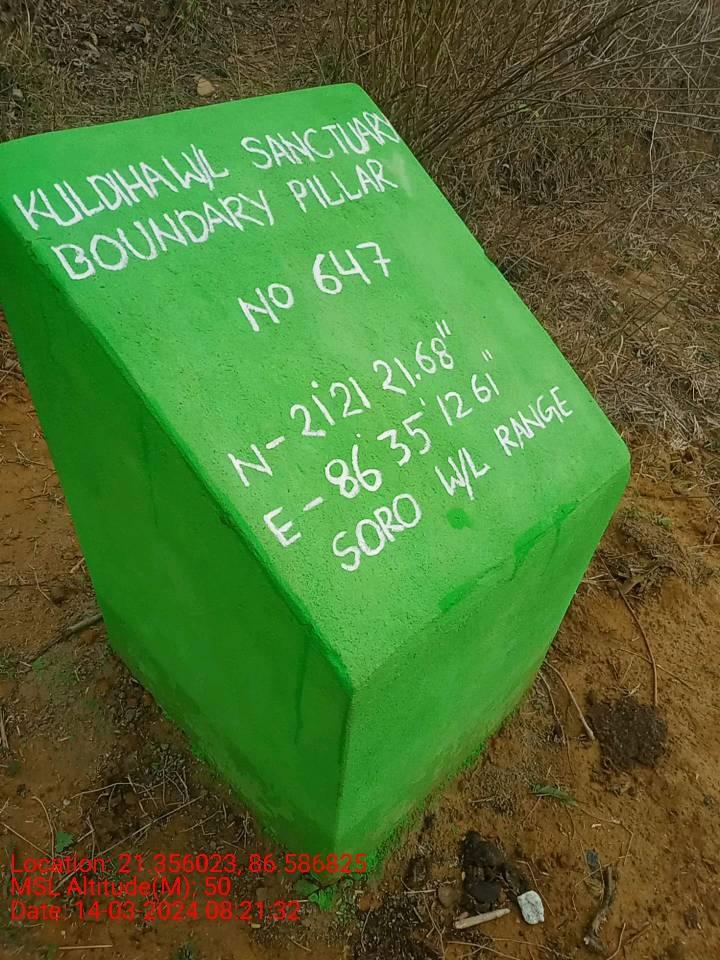 KULDIHA W/L SANCTUARY
BOUNDARY PILLAR
NO 647
N- 21° 21 21.68"
E- 86° 35' 12 61"
SORO W/L RANGE
Location: 21.356023, 86.586825
MSL Altitude(M): 50
Date: 14-03-2024 08:21:32